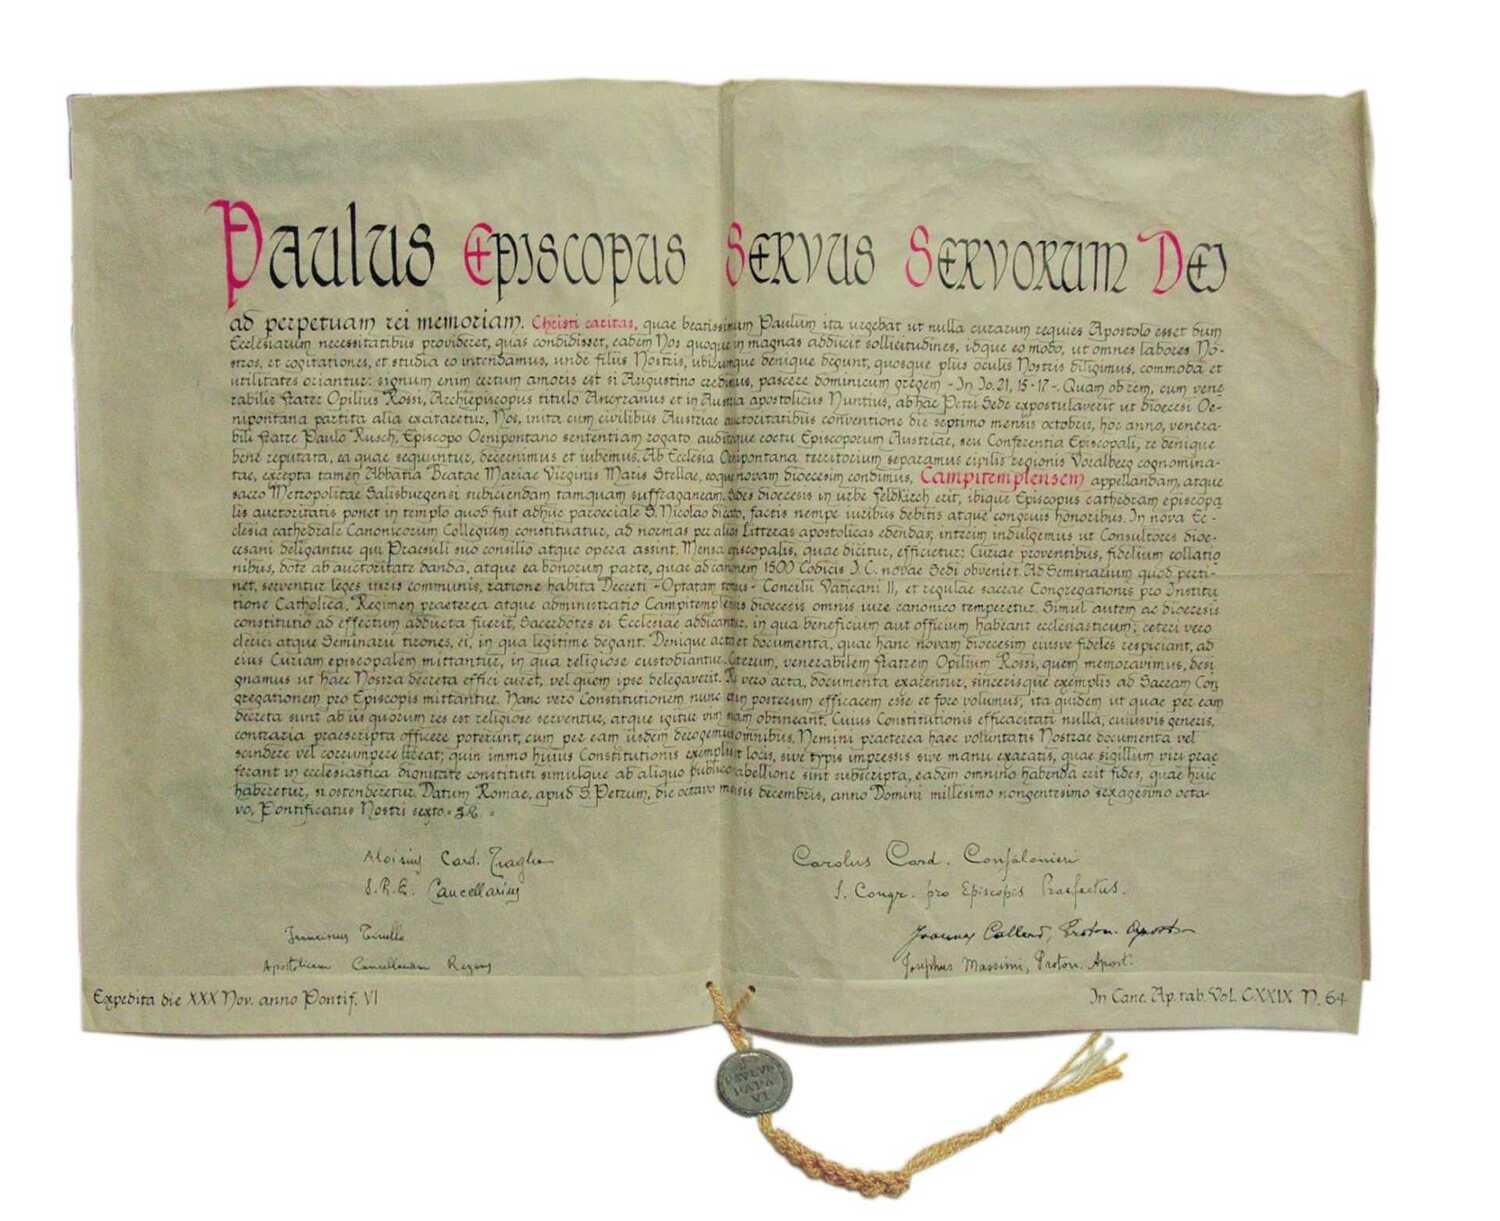 Paulus Episcopus Servus Servorum Dei
ad perpetuam rei memoriam. Christi caritas, quae beatissimum Paulum ita urgebat ut nulla curarum requies Apostolo esset dum
Ecclesiarum necessitatibus provideret, quas condidisset, eadem Nos quoque in magnas adducit sollicitudines, idque eo modo, ut omnes labores No-
stros, et cogitationes, et studia eo intendamus, unde filiis Nostris, ubicumque denique degunt, quosque plus oculis Nostris diligimus, commoda et
utilitates oriantur: signum enim certum amoris est si Augustino credimus, pascere dominicum gregem - In Io. 21, 15-17 -. Quam ob rem, cum vene
rabilis frater Opilius Rossi, Archiepiscopus titulo Ancyranus et in Austria apostolicus Nuntius, ab hac Petri Sede expostulaverit ut dioecesi Oe-
nipontana partita alia excitaretur, Nos, inita cum civilibus Austriae auctoritatibus conventione die septimo mensis octobris, hoc anno, venera-
bili fratre Paulo Rusch, Episcopo Oenipontano sententiam rogato, auditoque coetu Episcoporum Austriae, seu Conferentia Episcopali, re denique
bene reputata, ea quae sequuntur, decernimus et iubemus. Ab Ecclesia Oenipontana territorium separamus civilis regionis Voralberg cognomina-
tae, excepta tamen Abbatia Beatae Mariae Virginis Maris Stellae, eoque novam dioecesim condimus, Campitemplensem appellandam, atque
sacro Metropolitae Salisburgensi subiciendam tamquam suffraganeam. Sedes dioecesis in urbe Feldkirch erit, ibique Episcopus cathedram episcopa
lis auctoritatis ponet in templo quod fuit adhuc paroeciale S. Nicolao dicato, factis nempe iuribus debitis atque congruis honoribus. In nova Ec-
clesia cathedrale Canonicorum Collegium constituatur, ad normas per alias Litteras apostolicas edendas; interim indulgemus ut Consultores dioe-
cesani deligantur qui Praesuli suo consilio atque opera assint. Mensa episcopalis, quae dicitur, efficietur: Curiae proventibus, fidelium collatio
nibus, dote ab auctoritate danda, atque ea bonorum parte, quae ad canonem 1500 Codicis I. C. novae Sedi obveniet. Ad Seminarium quod perti-
net, serventur leges iuris communis, ratione habita Decreti - Optatam totius - Concilii Vaticani II, et regulae sacrae Congregationis pro Institu
tione Catholica. Regimen praeterea atque administratio Campitemplensis dioecesis omnis iure canonico temperetur. Simul autem ac dioecesis
constitutio ad effectum adducta fuerit, Sacerdotes ei Ecclesiae addicantur, in qua beneficium aut officium habeant ecclesiasticum; ceteri vero
clerici atque Seminarii tirones, ei, in qua legitime degant. Denique acta et documenta, quae hanc novam dioecesim eiusve fideles respiciant, ad
eius Curiam episcopalem mittantur, in qua religiose custodiantur. Ceterum, venerabilem fratrem Opilium Rossi, quem memoravimus, desi
gnamus ut haec Nostra decreta effici curet, vel quem ipse delegaverit. Re vero acta, documenta exarentur, sincerisque exemplis ad Sacram Con
gregationem pro Episcopis mittantur. Hanc vero Constitutionem nunc et in posterum efficacem esse et fore volumus; ita quidem ut quae per eam
decreta sunt ab iis quorum res est religiose serventur, atque igitur vim suam obtineant. Cuius Constitutionis efficacitati nulla, cuiusvis generis,
contraria praescripta officere poterunt, cum per eam iisdem derogemus omnibus. Nemini praeterea haec voluntatis Nostrae documenta vel
scindere vel corrumpere liceat; quin immo huius Constitutionis exemplis et locis, sive typis impressis sive manu exaratis, quae sigillum viri prae
ferant in ecclesiastica dignitate constituti simulque ab aliquo publico tabellione sint subscripta, eadem omnino habenda erit fides, quae huic
haberetur, si ostenderetur. Datum Romae, apud S. Petrum, die octavo mensis decembris, anno Domini millesimo nongentesimo sexagesimo octa-
vo, Pontificatus Nostri sexto.
Aloisius Card. Traglia
S.R.E. Cancellarius
Carolus Card. Confalonieri
S. Congr. pro Episcopis Praefectus.
Franciscus Tinello
Apostolicam Cancellariam Regens
Joannes Calleri, Proton. Apost.
Josephus Massimi, Proton. Apost.
Expedita die XXX Nov. anno Pontif. VI
In Canc. Ap. tab. Vol. CXXIX N. 64
PAVLVS
PAPA
VI